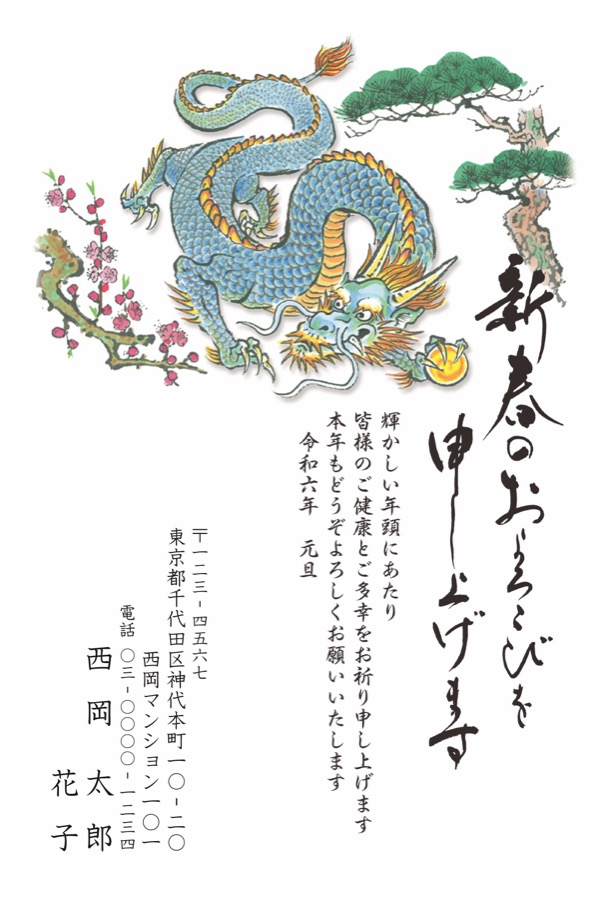 新春のおよろこびを
申し上げます
輝かしい年頭にあたり
皆様のご健康とご多幸をお祈り申し上げます
本年もどうぞよろしくお願いいたします
令和六年　元旦
〒一二三-四五六七
東京都千代田区神代本町一〇-二〇
西岡マンション一〇一
電話　〇三-〇〇〇〇-一二三四
西岡太郎
花子